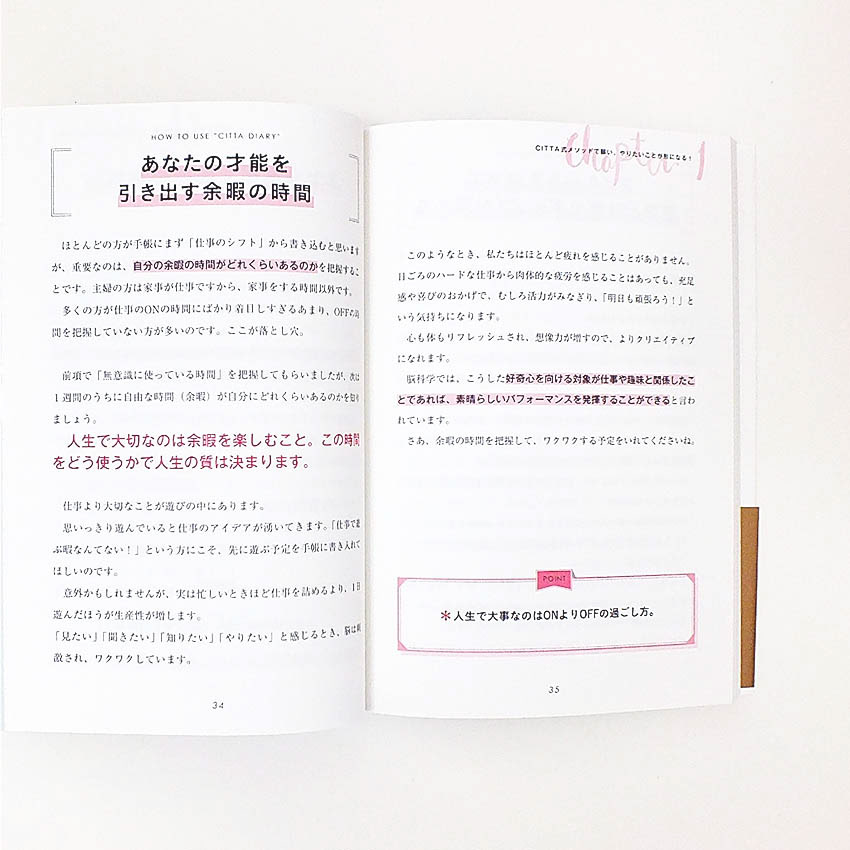 HOW TO USE "CITTA DIARY"
あなたの才能を
引き出す余暇の時間
ほとんどの方が手帳にまず「仕事のシフト」から書き込むと思います
が、重要なのは、自分の余暇の時間がどれくらいあるのかを把握するこ
とです。主婦の方は家事が仕事ですから、家事をする時間以外です。
多くの方が仕事のONの時間にばかり着目しすぎるあまり、OFFの時
間を把握していない方が多いのです。ここが落とし穴。
前項で「無意識に使っている時間」を把握してもらいましたが、次は
1週間のうちに自由な時間（余暇）が自分にどれくらいあるのかを知り
ましょう。
人生で大切なのは余暇を楽しむこと。この時間
をどう使うかで人生の質は決まります。
仕事より大切なことが遊びの中にあります。
思いっきり遊んでいると仕事のアイデアが湧いてきます。「仕事で遊
ぶ暇なんてない！」という方にこそ、先に遊ぶ予定を手帳に書き入れて
ほしいのです。
意外かもしれませんが、実は忙しいときほど仕事を詰めるより、1日
遊んだほうが生産性が増します。
「見たい」「聞きたい」「知りたい」「やりたい」と感じるとき、脳は刺
激され、ワクワクしています。
34
CITTA式メソッドで願い、やりたいことが形になる！
Chapter 1
このようなとき、私たちはほとんど疲れを感じることがありません。
日ごろのハードな仕事から肉体的な疲労を感じることはあっても、充足
感や喜びのおかげで、むしろ活力がみなぎり、「明日も頑張ろう！」と
いう気持ちになります。
心も体もリフレッシュされ、想像力が増すので、よりクリエイティブ
になれます。
脳科学では、こうした好奇心を向ける対象が仕事や趣味と関係したこ
とであれば、素晴らしいパフォーマンスを発揮することができると言わ
れています。
さあ、余暇の時間を把握して、ワクワクする予定をいれてくださいね。
POINT
＊人生で大事なのはONよりOFFの過ごし方。
35